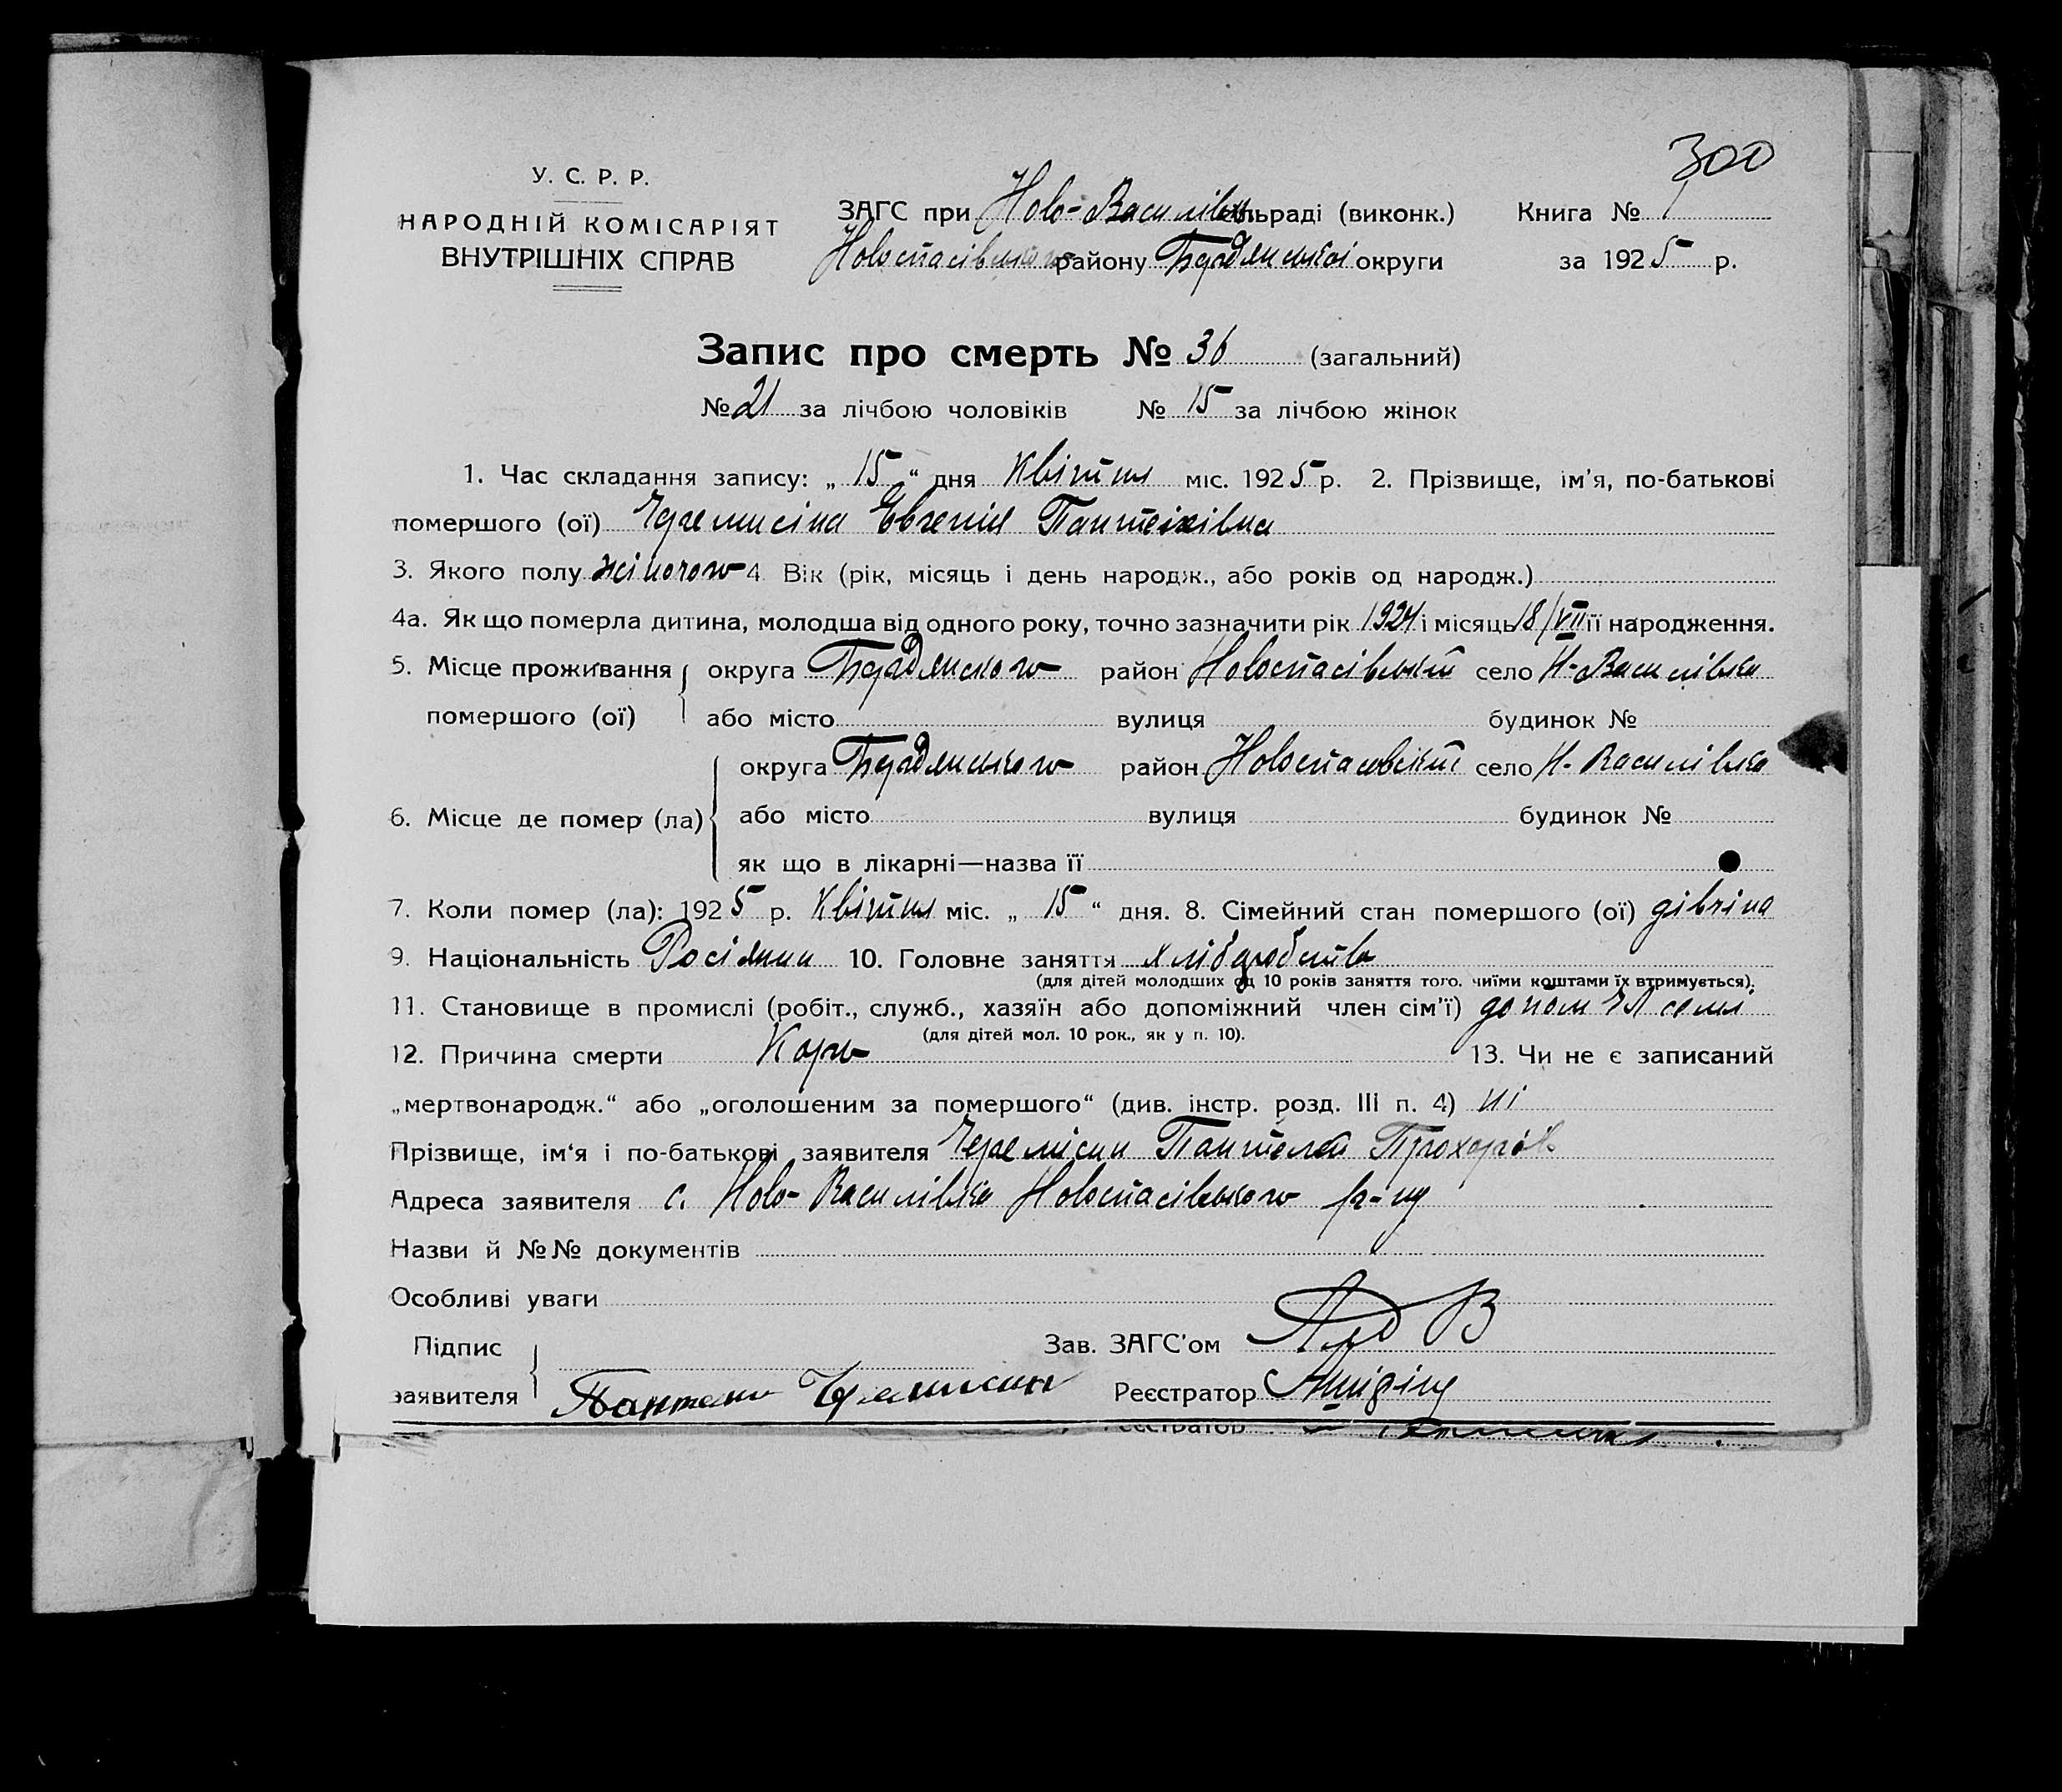 300
У. С. Р. Р.
НАРОДНІЙ КОМІСАРІЯТ
ВНУТРІШНІХ СПРАВ
ЗАГС при Ново-Василівк льраді (виконк.) Книга № 1
Новоспасівського району Бердянської округи за 1925 р.
Запис про смерть № 36 (загальний)
№ 21 за лічбою чоловіків № 15 за лічбою жінок
1. Час складання запису: „ 15 “ дня Квітня міс. 1925 р. 2. Прізвище, ім'я, по-батькові
помершого (ої) Черемисіна Евгенія
3. Якого полу жіночого 4 Вік (рік, місяць і день народж., або років од народж.)
4а. Як що померла дитина, молодша від одного року, точно зазначити рік 1924 і місяць 18/VII її народження.
5. Місце проживання округа Бердянського район Новоспасівський село Н-Василівка
помершого (ої) або місто вулиця будинок №
округа Бердянського район Новоспасовский село Н-Василівка
6. Місце де помер (ла) або місто вулиця будинок №
як що в лікарні—назва її
7. Коли помер (ла): 1925 р. Квітня міс. „ 15 “ дня. 8. Сімейний стан помершого (ої) дівчіна
9. Національність Росіянин 10. Головне заняття хліборобство
(для дітей молодших од 10 років заняття того. чиїми коштами їх втримується).
11. Становище в промислі (робіт., служб., хазяїн або допоміжний член сім'ї) допом чл семі
(для дітей мол. 10 рок., як у п. 10).
12. Причина смерти Корь 13. Чи не є записаний
„мертвонародж.“ або „оголошеним за помершого“ (див. інстр. розд. III п. 4) ні
Прізвище, ім‘я і по-батькові заявителя Черемісин Пантелей Прохорів
Адреса заявителя с. Ново-Василівка Новоспасівського р-ну
Назви й №№ документів
Особливі уваги
Підпис Зав. ЗАГС'ом
заявителя Пантели Черемисин Реєстратор
Реєстратор